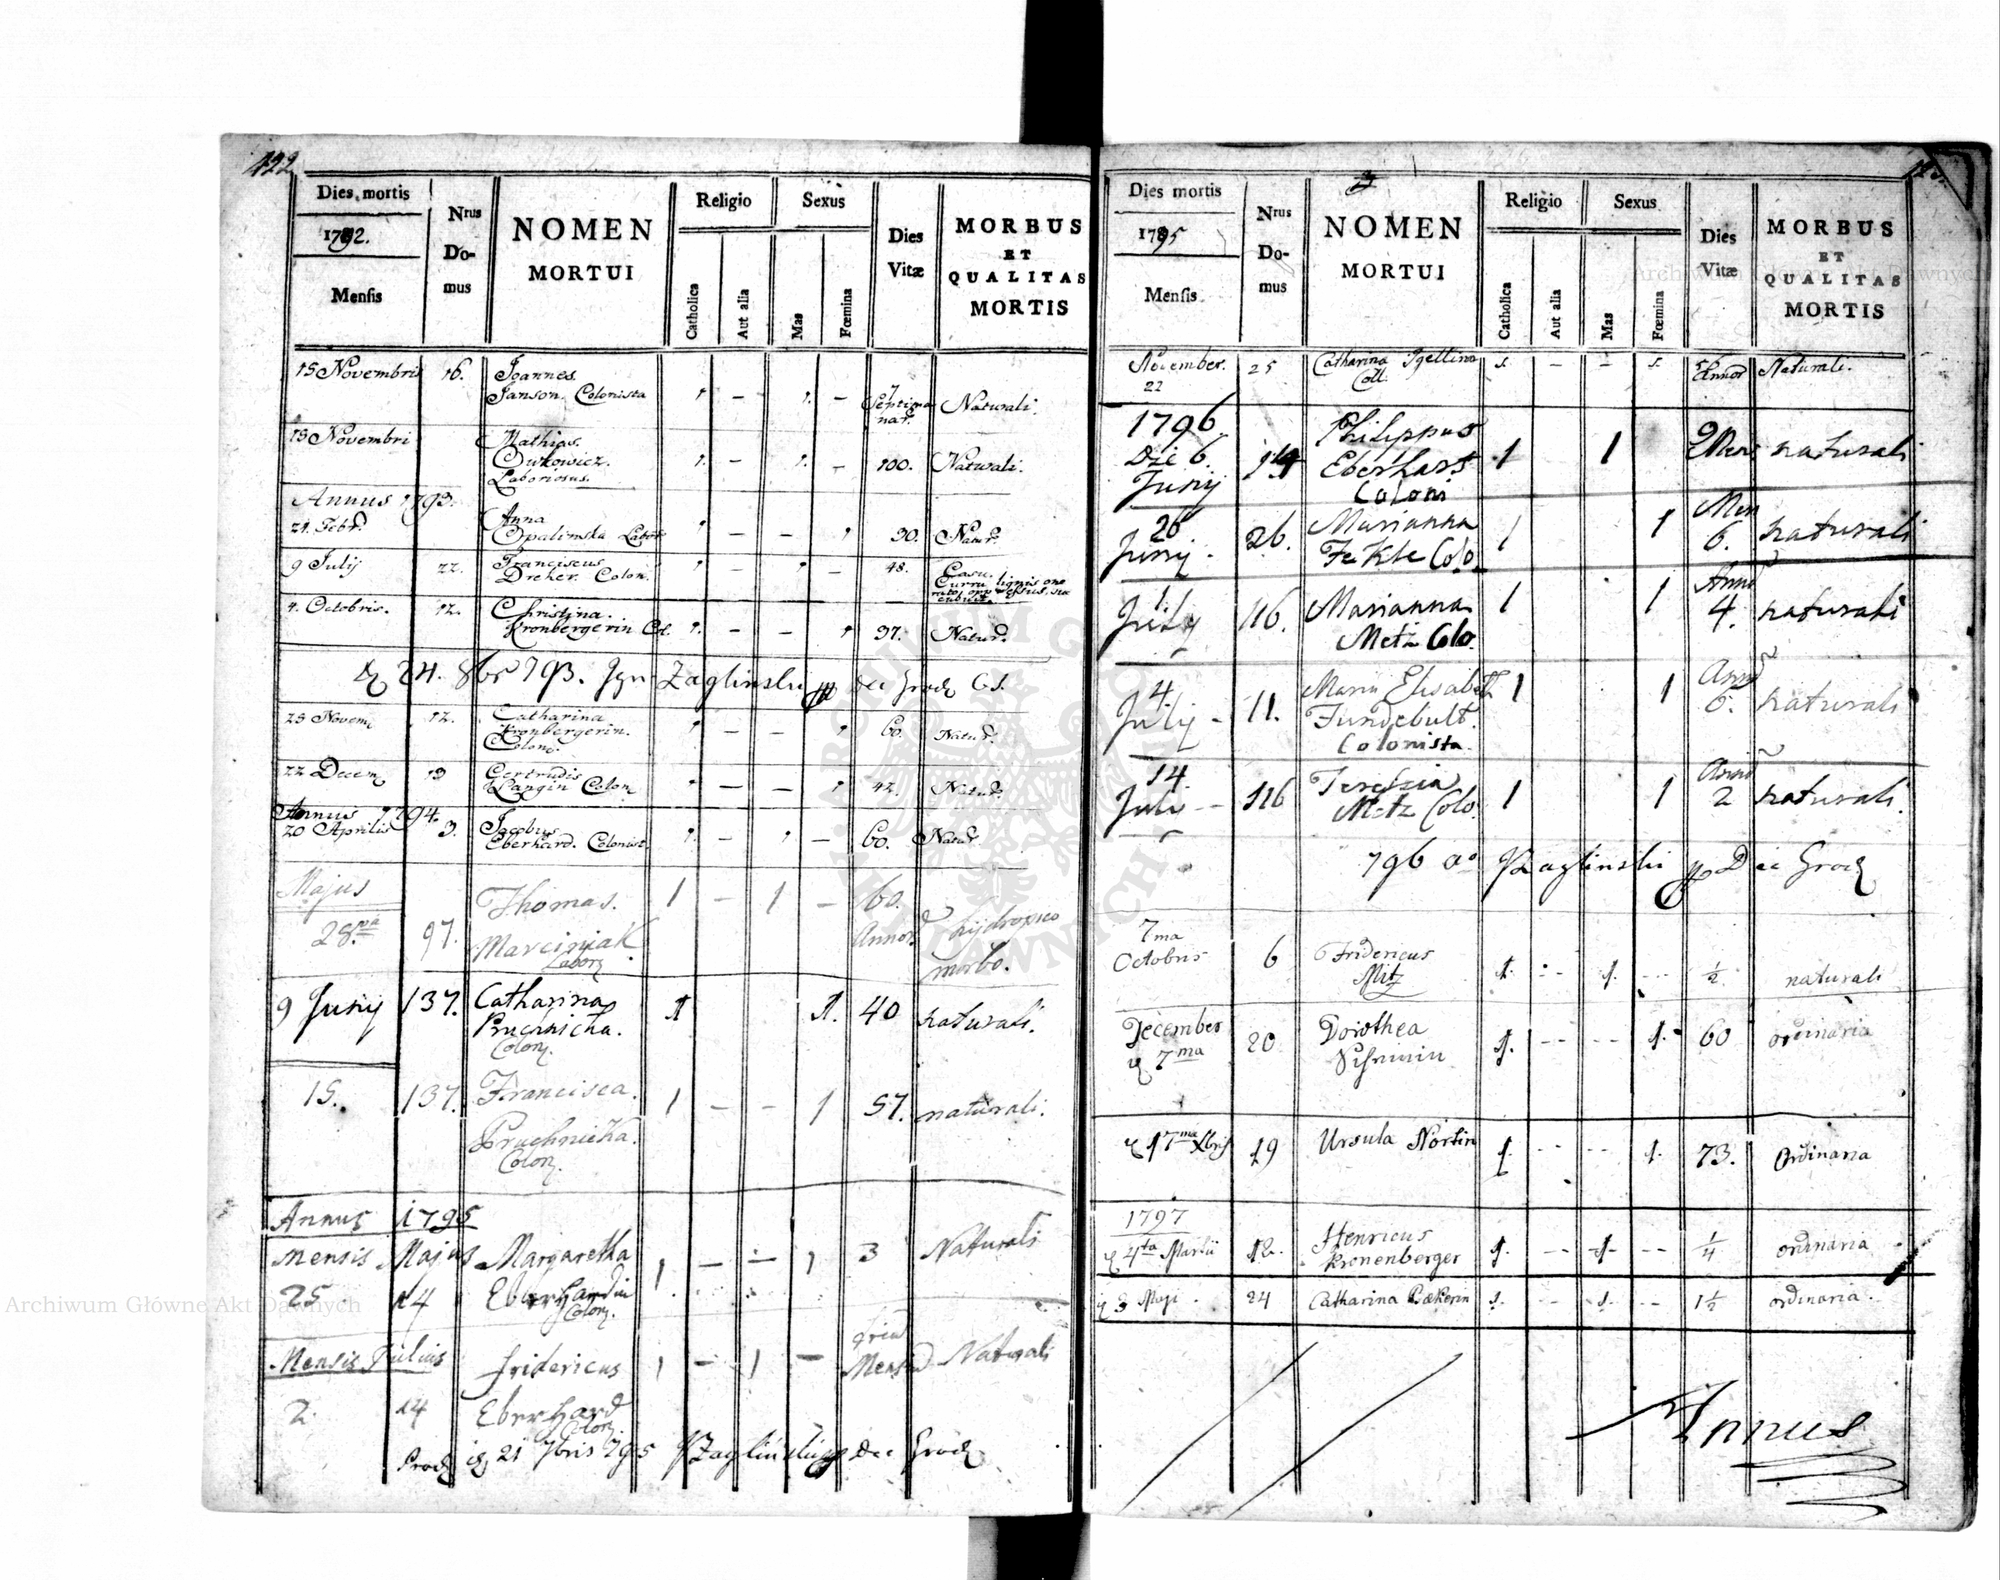 122
Dies mortis
1792.
Mensis
Nrus Do- mus
NOMEN
MORTUI
Religio
Catholica
Aut alia
Sexus
Mas
Fœmina
Dies
Vitæ
MORBUS
ET
QUALITAS
MORTIS
15 Novembris 16. Joannes
Janson. Colonista 1 – 1. – 7 Septima Naturali.
nar.
19 Novembri Mathias
1. – 1. – 100. Naturali.
Laboriosus.
Annus 1793.
21. Febr. Anna
Opalinska Labor 1 – – 1 30. Natur.
9 Julij 22. Franciscus
Dreher. Colon. 1 – 1 – 48. Casu.
Curru lignis one
4. Octobris. 12. Christina.
Kronbergerin Col. 1. – – 1 37. Natur.
24. 8br 793. Zaglinski Dec Grod
23 Novem 12. Catharina
Kronbergerin.
Colon. 1 – – 1 60. Natur.
22 Decem 19 Gertrudis
Langin Colon 1 – – 1 42. Natur.
Annus 1794.
20 Aprilis 3. Jacobus
Eberhard. Colonist. 1. – 1 – 60. Natur
Majus
28va 97. Thomas.
Marciniak.
Labor 1 – 1 – 60.
Annor hydropico
morbo.
9 Junij 137. Catharina
Pruchnicka.
Colon. 1 1. 40 naturali.
15. 137. Francisca.
Pruchnicka.
Colon. 1 – – 1 57. naturali.
Annus 1795
Mensis Majus Margaretha
25 14 Eberhardin
Colon. 1 – – 1 3 Naturali
Mensis Julius Fridericus
2. 14 Eberhard
Colon. 1 – 1 – Mens Naturali
21 7bris 795 Zaglinski Dec Grod
Dies mortis
1795
Mensis
Nrus Do- mus
NOMEN
MORTUI
Religio
Catholica
Aut alia
Sexus
Mas
Fœmina
Dies
Vitæ
MORBUS
ET
QUALITAS
MORTIS
November.
22 25 Catharina
Coll. 1. – – 1. Annor Naturali.
1796.
Die 6.
Junij 14 Philippus
Eberhart
Coloni 1 1 2 Mens naturali
26
Junij - 26. Marianna
Fekle Colo. 1 1 Men
6. naturali
1.
July 116. Marianna
Metz Colo. 1 1 Anno
4. naturali
4.
July - 11. Maria Elisabeth
Fundebult.
Colonista. 1 1 Anno
6. naturali
14
Juli - 116 Terefzia
Metz Colo. 1 1 Anno
2 naturali.
796 ao Zaglinski Dec Grod
7ma
Octobris 6 Fridericus
Mitz 1. -- 1. -- 1/2 naturali
December
7ma 20 Dorothea
1. -- -- 1. 60 ordinaria
17ma Xbris 19 Ursula Nortin 1. -- -- 1. 73. Ordinaria
1797
4ta Martii 12. Henricus
Kronenberger 1. -- 1. -- 1/4 ordinaria
3 Maji 24 Catharina Bekerin 1. -- 1. -- 1 1/2 ordinaria.
Annus
Archiwum Główne Akt Dawnych
Archiwum Główne Akt Dawnych
ARCHIWUM GŁÓWNE AKT DAWNYCH